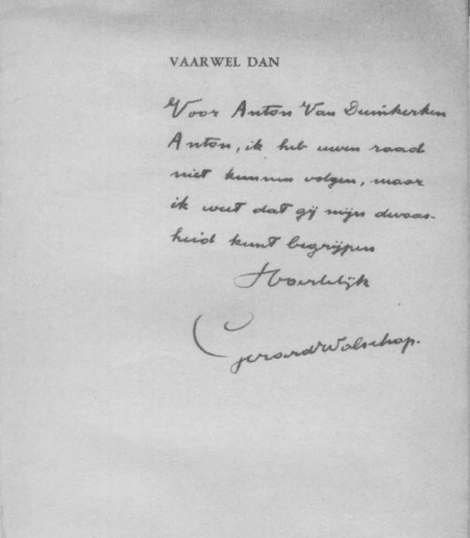 VAARWEL DAN
Voor Anton Van Duinkerken
Anton, ik heb uwen raad
niet kunnen volgen, maar
ik weet dat gij mijn dwaas-
heid kunt begrijpen
Hartelijk
Gerard Walschap.